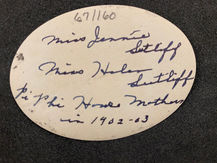 67/160
Miss Jennie
Sutliff
Miss Helen
Sutliff
Pi Phi House Mothers
in 1902-03